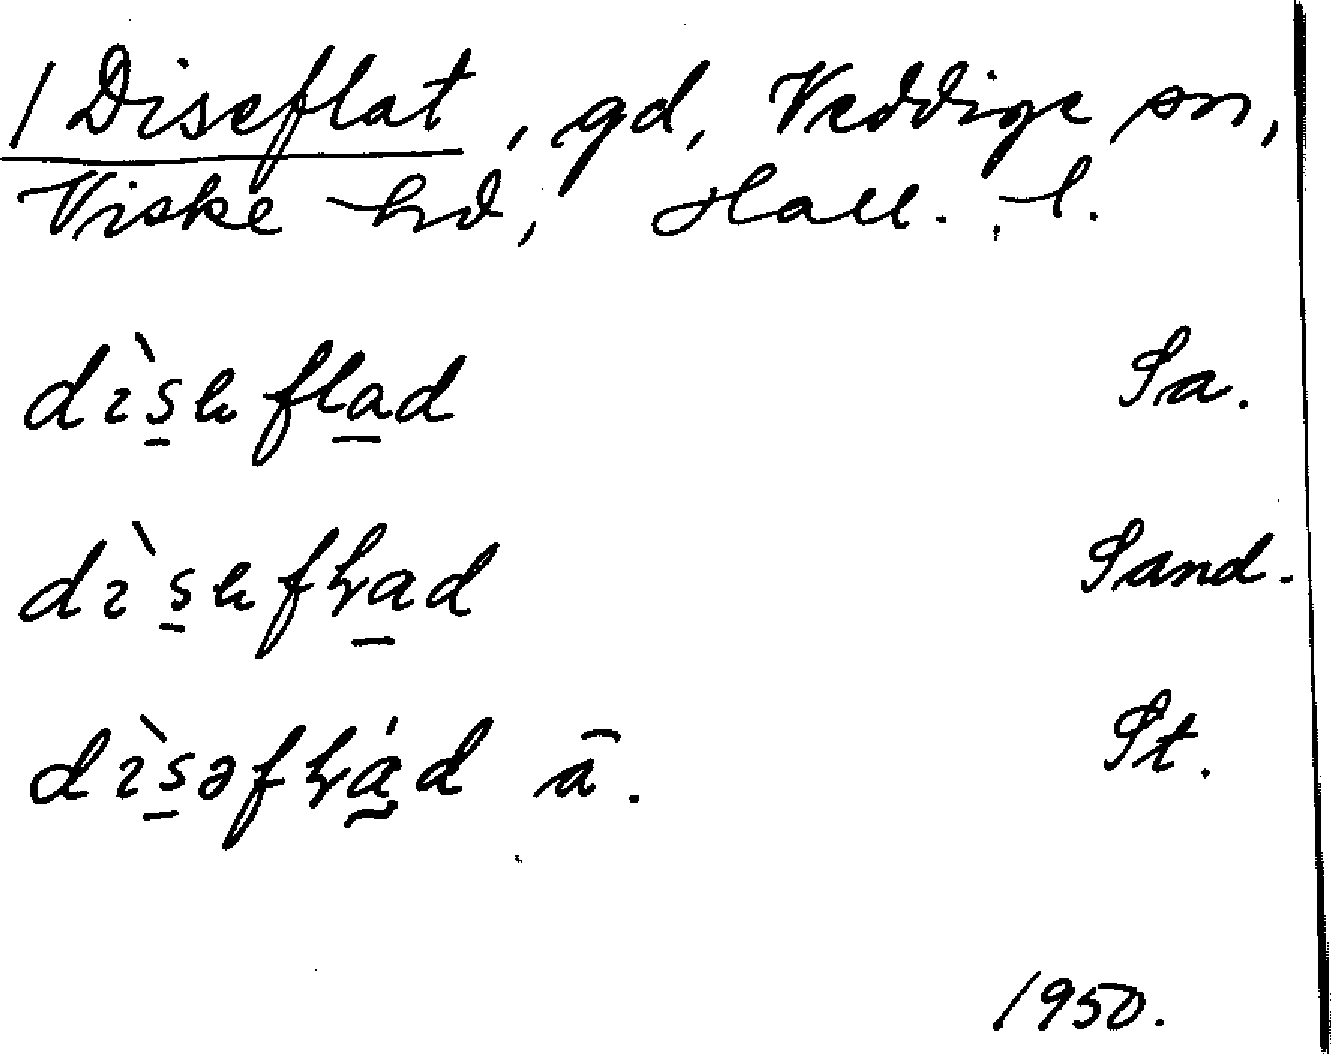 / Diseflat, gd, Veddige sn,
Viske hd, Hall. l.
dı̀s̱efla̱d Sa.
dı̀s̱efła̱d Sand.
dı̀s̱əfłá̱d ā. St.
1950.